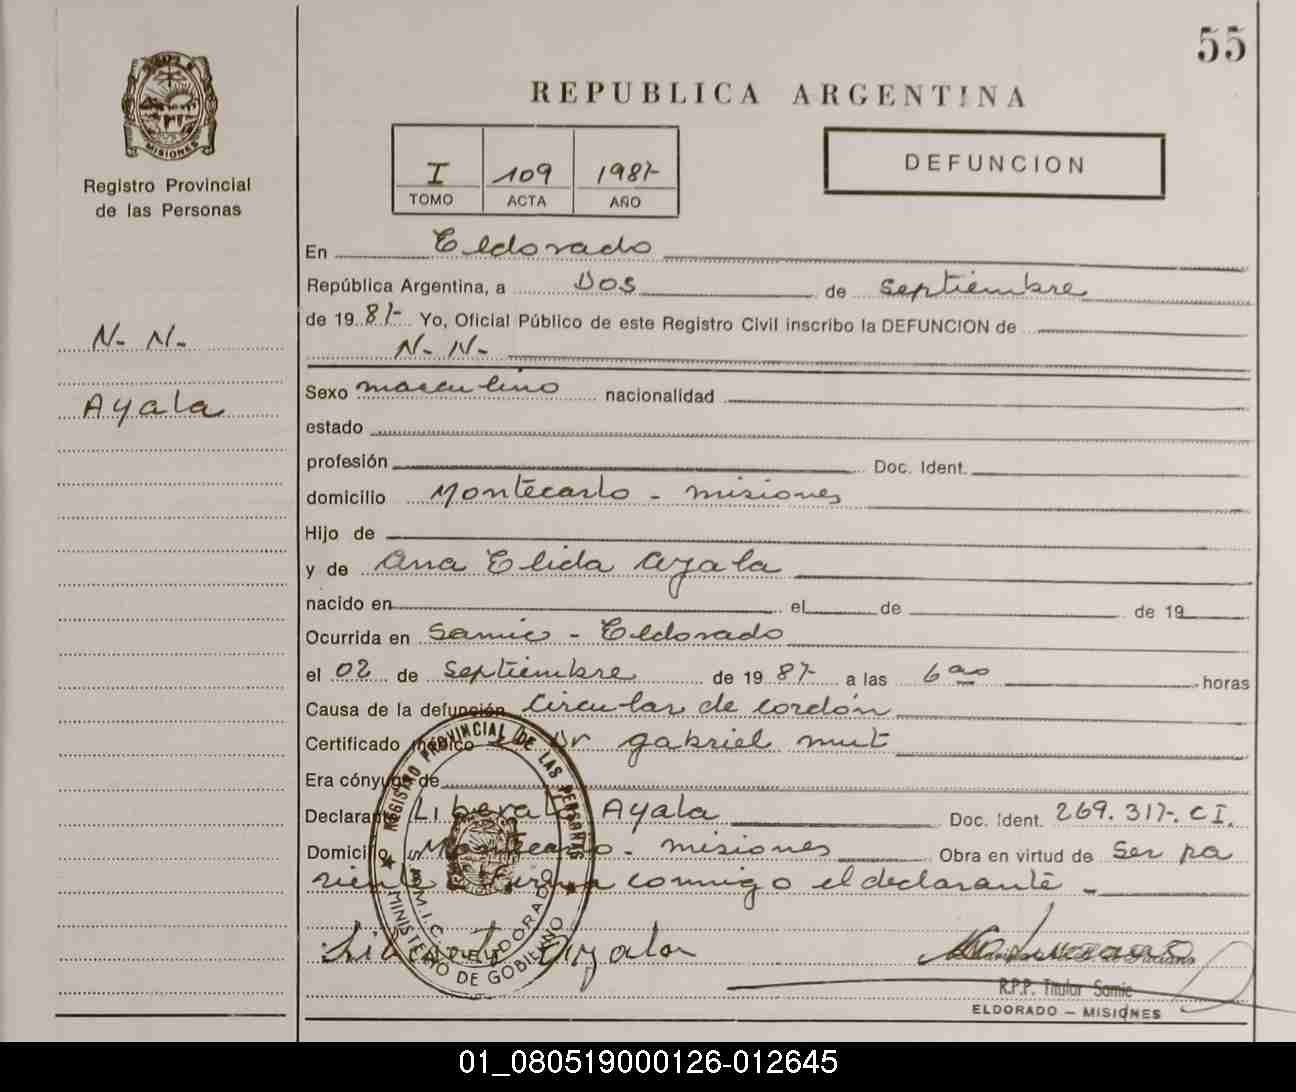 55
REPUBLICA ARGENTINA
MISIONES
Registro Provincial
de las Personas
I 109 1987-
TOMO ACTA AÑO
DEFUNCION
N- N-
Ayala
En Eldorado
República Argentina, a Dos de septiembre
de 1987- Yo, Oficial Público de este Registro Civil inscribo la DEFUNCION de
N- N-
Sexo masculino nacionalidad
estado
profesión Doc. Ident.
domicilio Montecarlo - misiones
Hijo de
y de Ana Elida Ayala
nacido en el de de 19
Ocurrida en Samic - Eldorado
el 02 de septiembre de 1987- a las 6 horas
Causa de la defunción Circular de cordón
Certificado médico Dr gabriel mut
Era cónyuge de
Declarante Liberato Ayala Doc. Ident. 269.317-. CI.
Domicilio Montecarlo - misiones Obra en virtud de Ser pa
riente firma conmigo el declarante -
Liberato Ayala
R.P.P. Titular Samic
ELDORADO - MISIONES
REGISTRO PROVINCIAL DE LAS PERSONAS
MINISTERIO DE GOBIERNO
ELDORADO
01_080519000126-012645